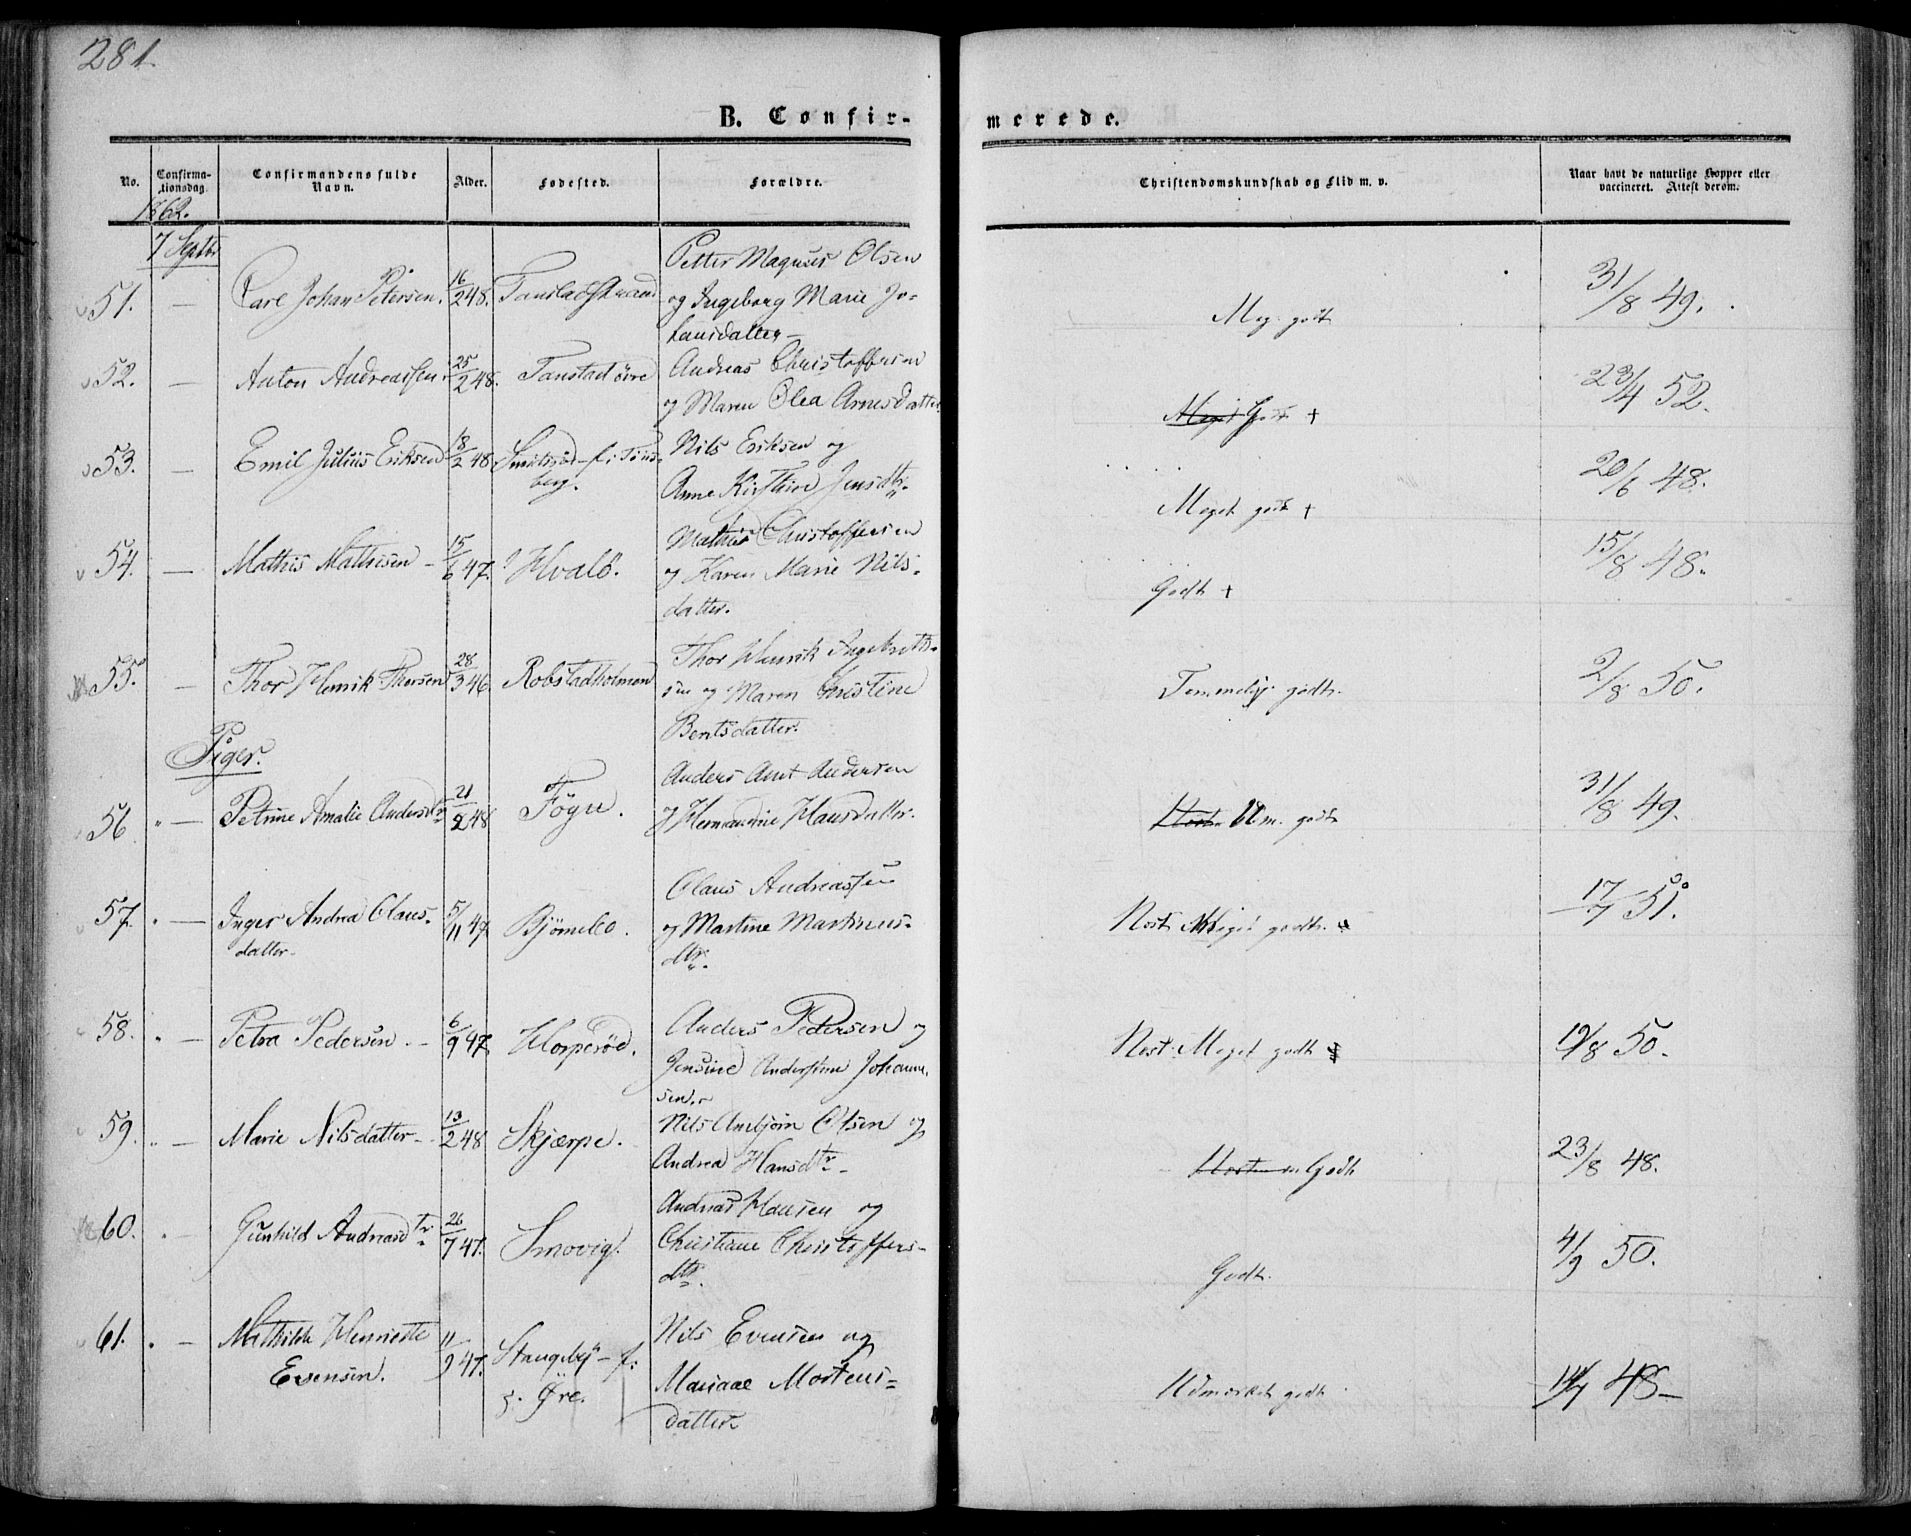 281.
B. Confir-
merede.
No.
Confirma-
tionsdag.
Confirmandens fulde
Navn.
Alder.
Fødested.
Forældre.
Christendomskundskab og Flid m. v.
Naar havt de naturlige Kopper eller
vaccineret. Attest derom.
1862.
7 Septbr
51. — Carl Johan Petersen. 16/2 48. Tanstadstrand Petter Magnus Olsen
og Ingeborg Marie Jo-
hansdatter— Meg. godt 31/8 49.
52. — Anton Andreassen 25/2 48. Tanstad övre Andreas Christoffersen
og Maren Olea Arnesdatter Meget Godt + 23/4 52.
53. — Emil Julius Eriksen 18/2 48. f. i Töns-
berg. Nils Eriksen og
Anne Kirstine Jensdtr. Meget godt + 20/6 48.
54. — Mathis Mathisen — 15/6 47. Hvalö. Mathis Christoffersen
og Karen Marie Nils-
datter. Godt + 15/8 48.
55. — Thor Henrik Thorsen 28/3 46. Robstadholmen Thor Henrik Ingebrett-
sen og Maren Christine
Bentsdatter. Temmelig godt. 2/8 50.
Piger.
56 " — Petrine Amalie Andersdtr 21/2 48 Fögn. Anders Arnt Andersen
og Hernandine Hansdatter. Um. godt 31/8 49.
57. " — Inger Andrea Claus-
datter. 5/11 47 Bjömebo. Claus Andreassen
og Martine Martinus-
dtr. Næst Meget godt. 17/7 51.
58. " — Petra Pedersen. — 6/9 47 Horperöd. Anders Pedersen og
Jensine Anderstine Johanne-
sen. Næst Meget godt 19/8 50.
59. " — Marie Nilsdatter — 13/2 48 Skjærpe. Nils Anbjörn Olsen og
Andrea Hansdtr — Godt 23/8 48.
60. " — Gunhild Andreasdtr 26/7 47. Smovig. Andreas Hansen og
Christiane Christoffers-
dtr. Godt. 4/9 50.
61. " — Mathilde Henriette
Evensen. 11/9 47. Stangeby — f.
p. Øre. Nils Evensen og
Mariane Mortens-
datter. Udmærket godt 14/7 48—